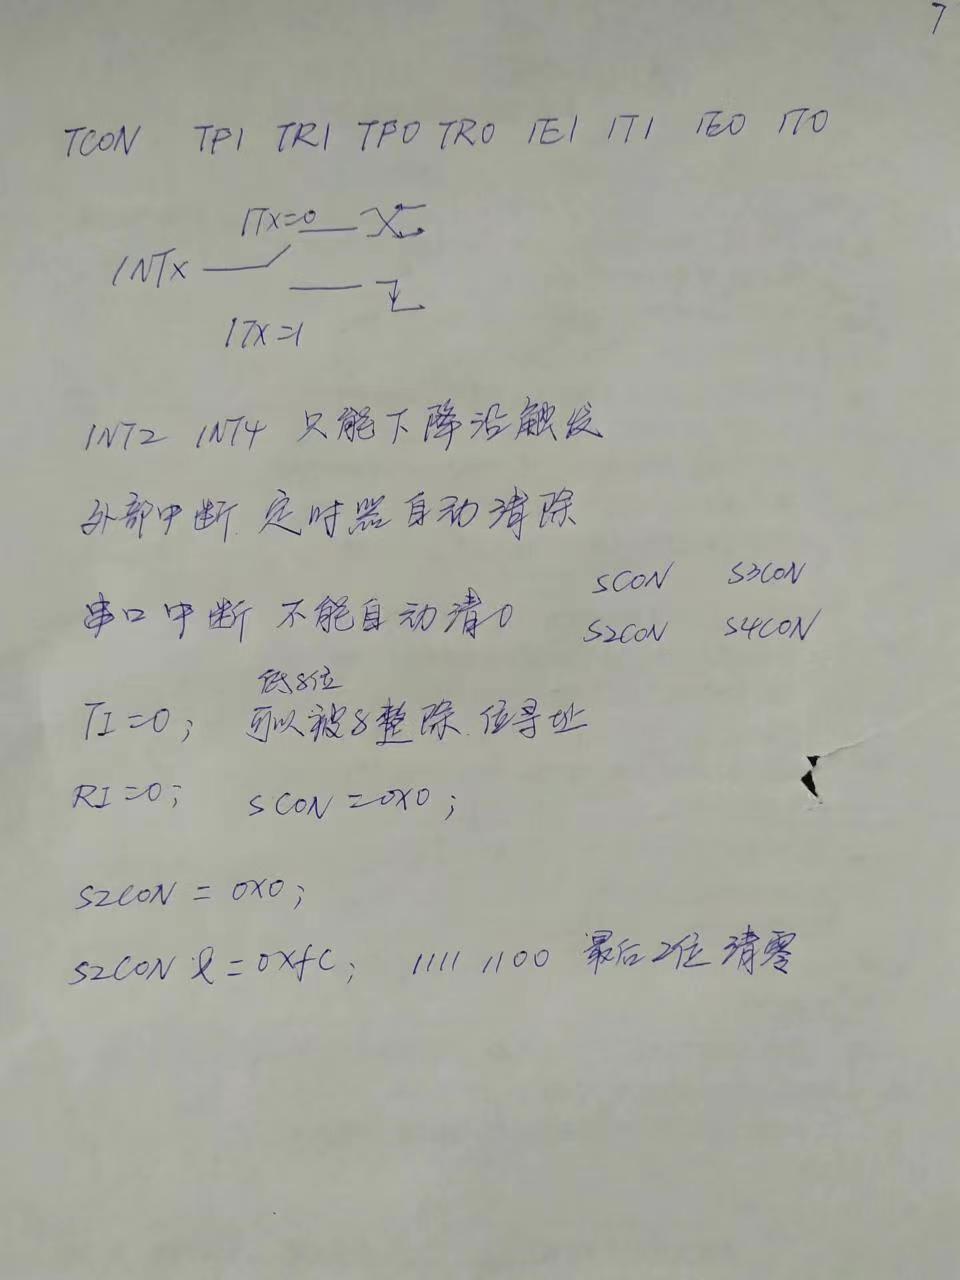 7
TCON TF1 TR1 TF0 TR0 IE1 IT1 IE0 IT0
ITx=0
INTx
ITx=1
INT2 INT4 只能下降沿触发
外部中断 定时器自动清除
串口中断 不能自动清0
SCON S3CON
S2CON S4CON
低8位
TI=0; 可以被8整除 位寻址
RI=0; SCON=0X0;
S2CON = 0X0;
S2CON &=0xfC; 1111 1100 最后2位清零